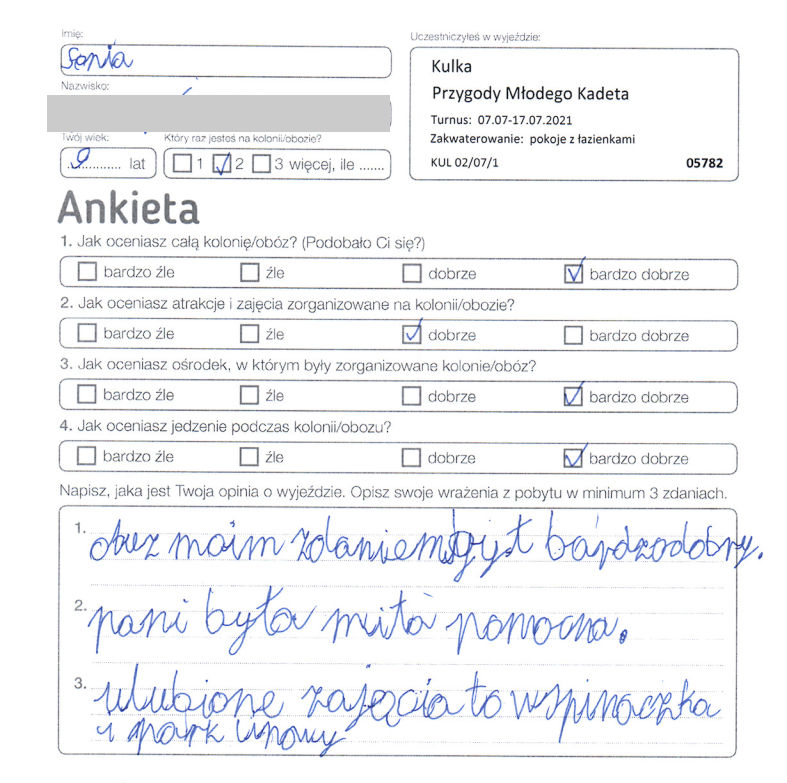 Imię:
Sonia
Nazwisko:
Twój wiek:
9 lat
Który raz jesteś na kolonii/obozie?
1 2 3 więcej, ile .......
Uczestniczyłeś w wyjeździe:
Kulka
Przygody Młodego Kadeta
Turnus: 07.07-17.07.2021
Zakwaterowanie: pokoje z łazienkami
KUL 02/07/1 05782
Ankieta
1. Jak oceniasz całą kolonię/obóz? (Podobało Ci się?)
bardzo źle źle dobrze bardzo dobrze
2. Jak oceniasz atrakcje i zajęcia zorganizowane na kolonii/obozie?
bardzo źle źle dobrze bardzo dobrze
3. Jak oceniasz ośrodek, w którym były zorganizowane kolonie/obóz?
bardzo źle źle dobrze bardzo dobrze
4. Jak oceniasz jedzenie podczas kolonii/obozu?
bardzo źle źle dobrze bardzo dobrze
Napisz, jaka jest Twoja opinia o wyjeździe. Opisz swoje wrażenia z pobytu w minimum 3 zdaniach.
1. obuz moim zdaniem byt bardzodobry.
2. pani była miła pomocna.
3. ulubione zajęcia to wspinaczka
i park linowy